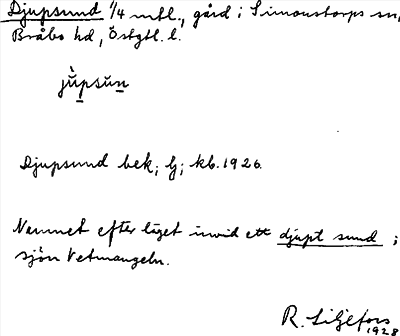 Djupsund 1/4 mtl., gård i Simonstorps sn,
Bråbo hd, Östgtl. l.
jùpsun
Djupsund bek; lj; kb. 1926.
Namnet efter läget invid ett djupt sund i
sjön Vetmangeln.
R. Liljefors
1928